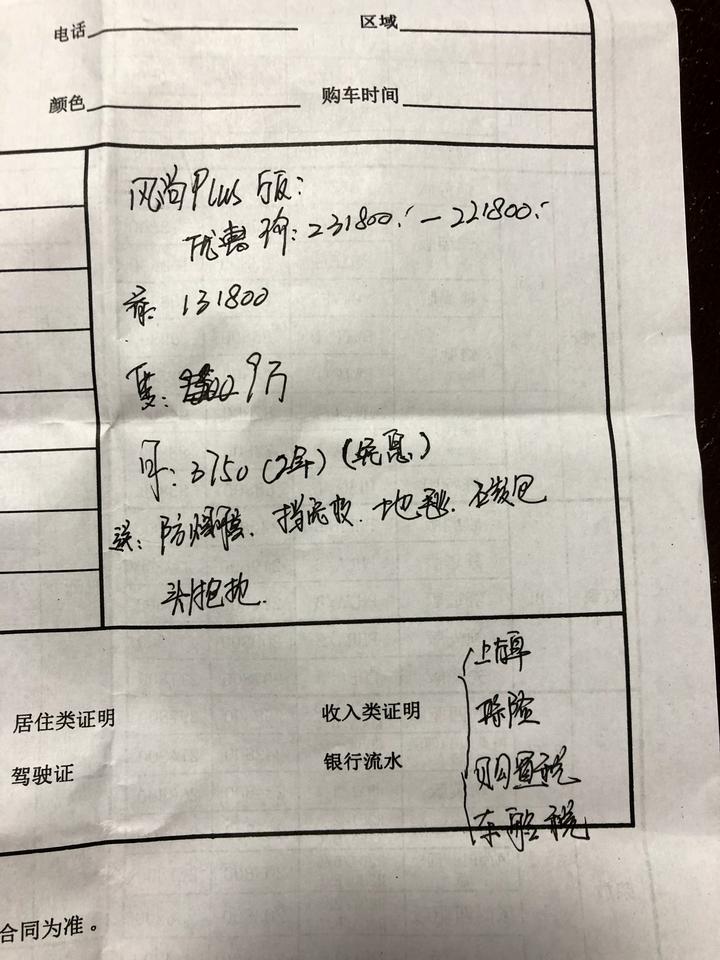 电话 区域
颜色 购车时间
风尚Plus版:
优惠价: 231800. — 221800.
首: 131800
贷: 9万
月: 3750 (2年) (免息)
送: 防爆膜. 挡泥板. 地毯. 应急包
头枕抱枕.
上牌
居住类证明 收入类证明
保险
驾驶证 银行流水
购置税
车船税
合同为准。